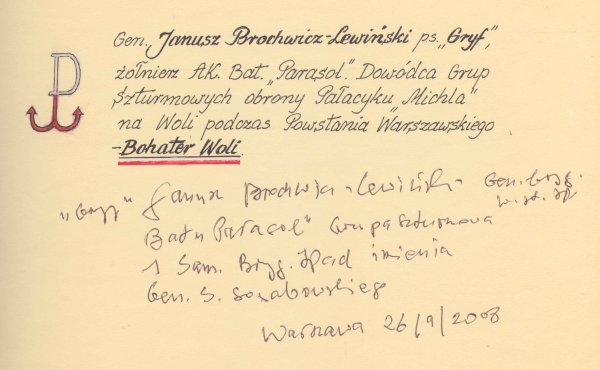 Gen. Janusz Brochwicz-Lewiński ps. „Gryf",
żołnierz AK. Bat. „Parasol". Dowódca Grup
Szturmowych obrony Pałacyku „Michla"
na Woli podczas Powstania Warszawskiego
-Bohater Woli.
„Gryf" Janusz Brochwicz-Lewiński Gen. bryg.
Batn Parasol" Grupa szturmowa
1 Sam. Bryg. Spad imienia
Gen. S. Sosabowskiego
Warszawa 26/9/2008